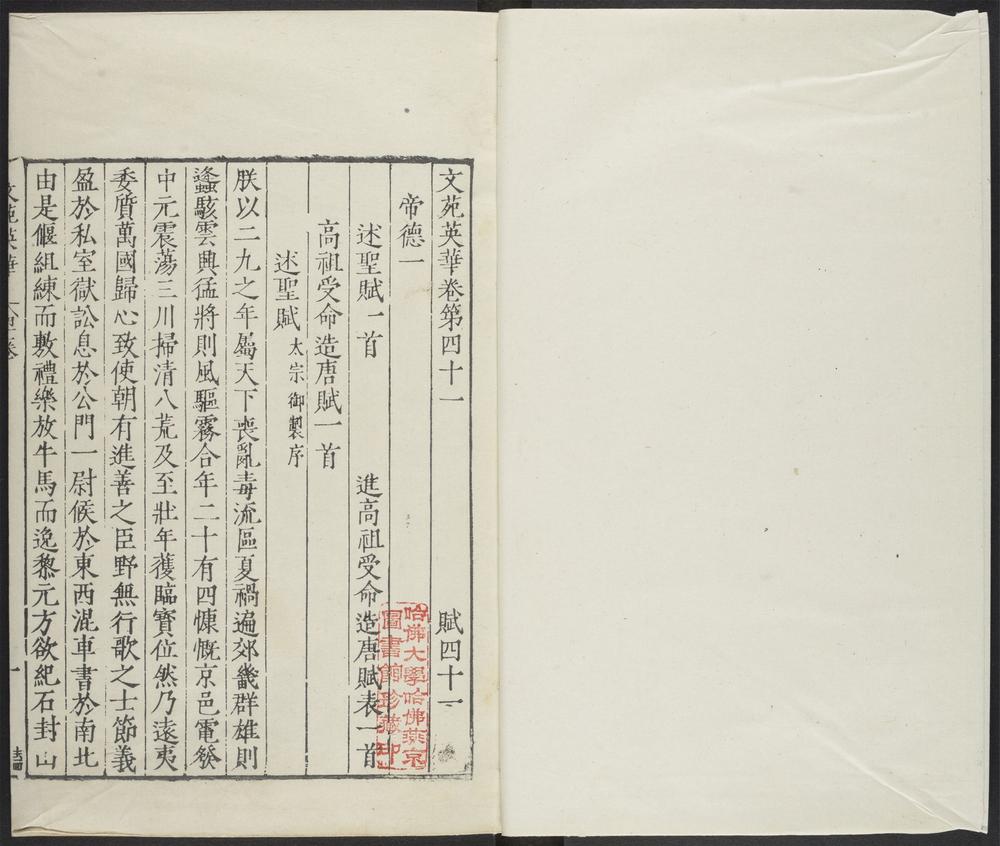 文苑英華卷第四十一 賦四十一
帝德一
述聖賦一首 進高祖受命造唐賦表一首
高祖受命造唐賦一首
述聖賦 太宗御製序
朕以二九之年屬天下喪亂毒流區夏禍遍郊畿群雄則
蠭駭雲興猛將則風驅霧合年二十有四慷慨京邑電發
中元震蕩三川掃清八荒及至壯年獲臨寳位然乃遠夷
委質萬國歸心致使朝有進善之臣野無行歌之士節義
盈於私室獄訟息於公門一尉候於東西混車書於南北
由是偃組練而敷禮樂放牛馬而逸黎元方欲紀石封山
文苑英華
卷
一
哈佛大學哈佛燕京
圖書館珍藏印